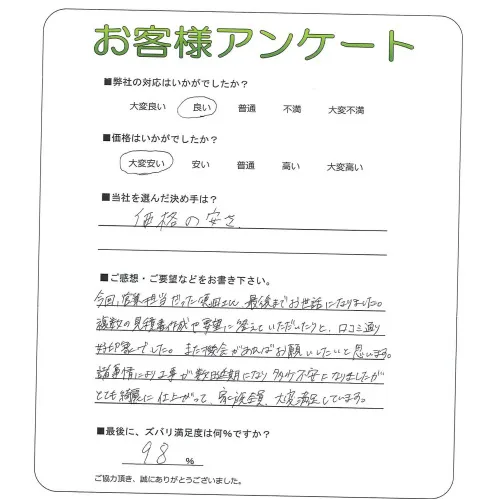 お客様アンケート
■弊社の対応はいかがでしたか？
大変良い 良い 普通 不満 大変不満
■価格はいかがでしたか？
大変安い 安い 普通 高い 大変高い
■当社を選んだ決め手は？
価格の安さ
■ご感想・ご要望などをお書き下さい。
今回、営業担当だった 最後までお世話になりました。
複数の見積書作成や要望に答えていただいたりと、口コミ通り
好印象でした。また機会があればお願いしたいと思います。
諸事情により工事が数回延期になり多少不安になりましたが
とても綺麗に仕上がって、家族全員、大変満足しています。
■最後に、ズバリ満足度は何%ですか？
98 %
ご協力頂き、誠にありがとうございました。